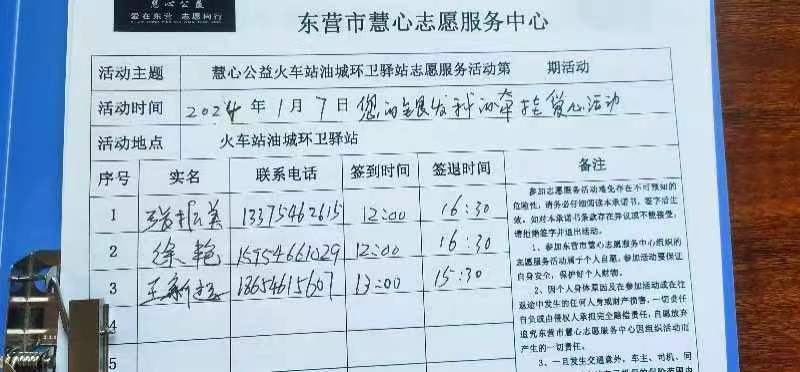 慧心公益
爱在东营 志愿同行
东营市慧心志愿服务中心
活动主题 慧心公益火车站油城环卫驿站志愿服务活动第 期活动
活动时间 2024年1月7日您的银发 爱心活动
活动地点 火车站油城环卫驿站
序号 实名 联系电话 签到时间 签退时间 备注
1 张振美 13375462615 12:00 16:30
2 徐艳 15954661029 12:00 16:30
3 王新 18654615607 13:00 15:30
4
5
参加志愿服务活动难免存在不可预知的
危险性,请务必仔细阅读本承诺书,签字后生
效。如对本承诺书条款存在异议或不能接受,
请拒绝签字并退出活动。
1、参加东营市慧心志愿服务中心组织的
志愿服务活动属于个人自愿。参加活动要保证
自身安全,保护好个人财物。
2、因个人身体原因及在参加活动或在往
返途中发生的任何人身或财产损害,一切责任
自负或由侵权人承担完全赔偿责任,自愿放弃
追究东营市慧心志愿服务中心因组织活动而
产生的一切责任。
3、一旦发生交通意外,车主、司机、同